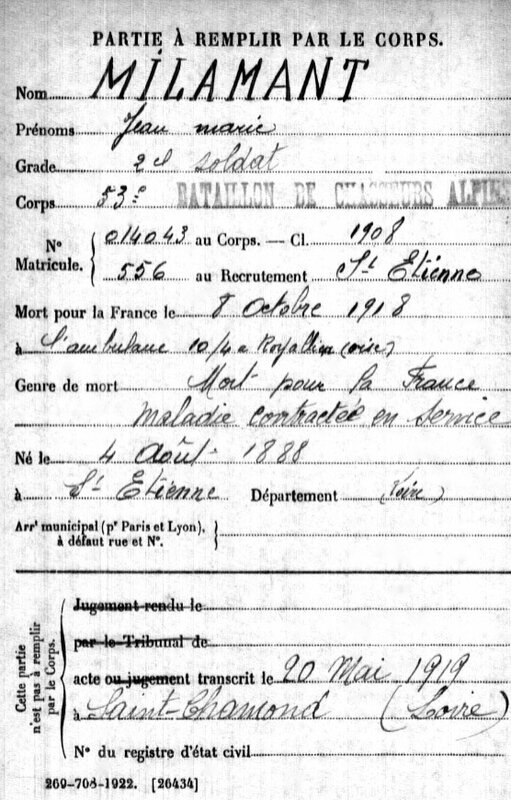 PARTIE À REMPLIR PAR LE CORPS.
Nom MILAMANT
Prénoms Jean marie
Grade 2e soldat
Corps 53e BATAILLON DE CHASSEURS ALPINS
N° Matricule. 014043 au Corps. — Cl. 1908
556 au Recrutement St Etienne
Mort pour la France le 8 Octobre 1918
à l'ambulance 10/4 a Royallieu (oise)
Genre de mort Mort pour la France
maladie contractée en service
Né le 4 Août 1888
à St Etienne Département (Loire)
Arrt municipal (pr Paris et Lyon),
à défaut rue et N°.
Cette partie n'est pas à remplir par le Corps.
Jugement rendu le
par le Tribunal de
acte ou jugement transcrit le 20 Mai 1919
à Saint-Chamond (Loire)
N° du registre d'état civil
269-708-1922. [26434]